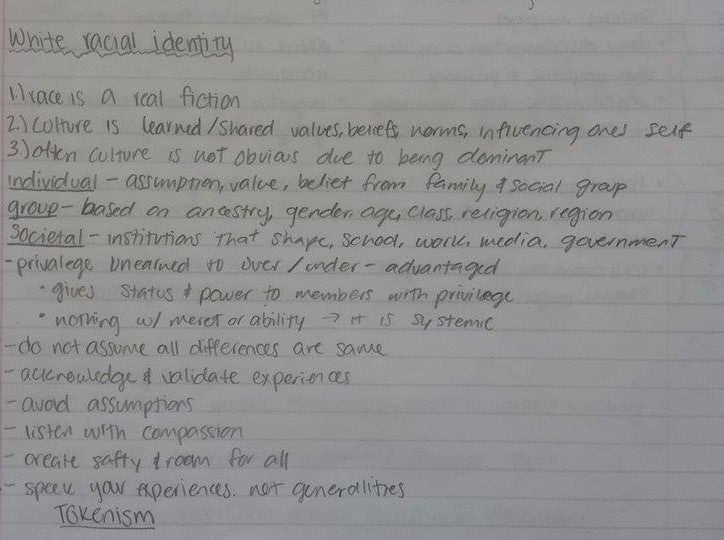 White racial identity
1.) race is a real fiction
2.) Culture is learned/shared values, beliefs, norms, influencing ones self
3.) often culture is not obvious due to being dominant
individual - assumption, value, belief from family & social group
group - based on ancestry, gender, age, class, religion, region
societal - institutions that shape, school, work, media, government
- privalege unearned to over/under-advantaged
• gives status & power to members with privilege
• nothing w/ meret or ability → it is systemic
- do not assume all differences are same
- acknowledge & validate experiences
- avoid assumptions
- listen with compassion
- create safty & room for all
- speek your experiences. not generalities
TOKENISM